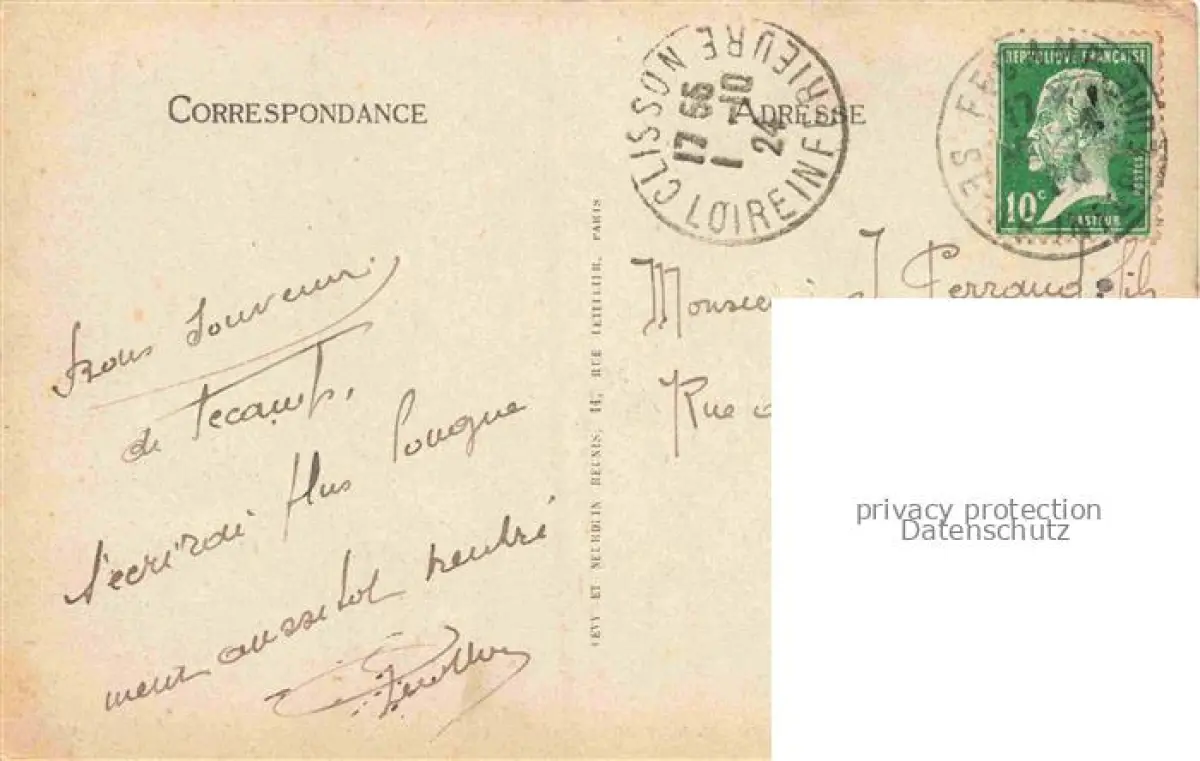 CORRESPONDANCE
ADRESSE
CLISSON
LOIRE INFERIEURE
17 55
1 -10
24
REPUBLIQUE FRANÇAISE
10c
POSTES
PASTEUR
Bons souvenirs
de Fecamp.
t'ecrirai plus longue
ment aussitot rentré
LEVY ET NEURDEIN REUNIS, 44, RUE LETELLIER, PARIS
Monsieur J Ferraud fils
Rue
privacy protection
Datenschutz